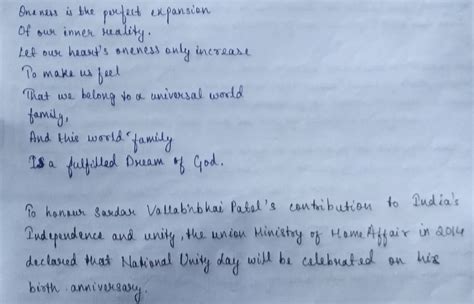 Oneness is the perfect expansion
Of our inner reality.
Let our heart's oneness only increase
To make us feel
That we belong to a universal world
family,
And this world family
Is a fulfilled Dream of God.
To honour Sardar Vallabhbhai Patel's contribution to India's
Independence and unity, the union Ministry of Home Affair in 2014
declared that National Unity day will be celebrated on his
birth anniversary.